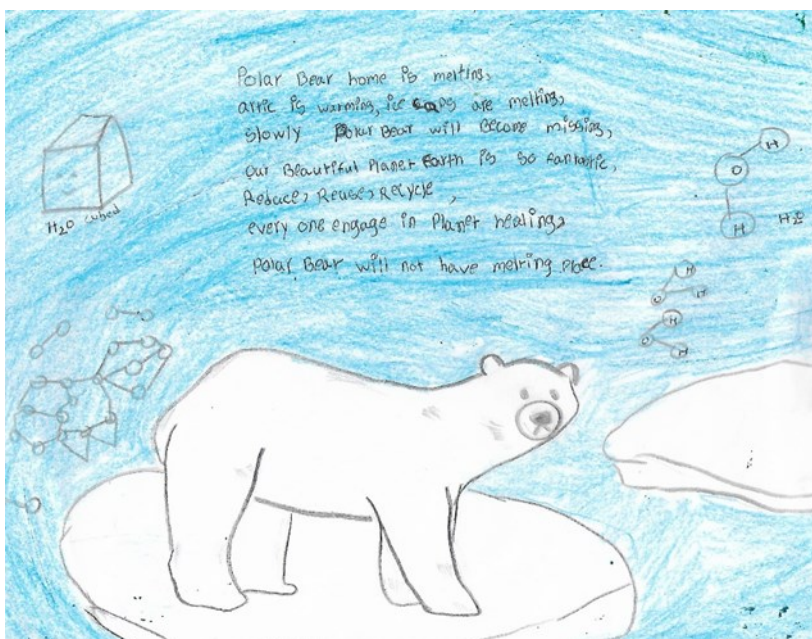 Polar Bear home is melting,
artic is warming, ice caps are melting,
slowly Polar Bear will become missing,
our Beautiful Planet Earth is so fantastic,
Reduce, Reuse, Recycle,
every one engage in Planet healing,
Polar Bear will not have melting place.
H2O cubed
H
O
H
H2O
H
O
H
H
O
H